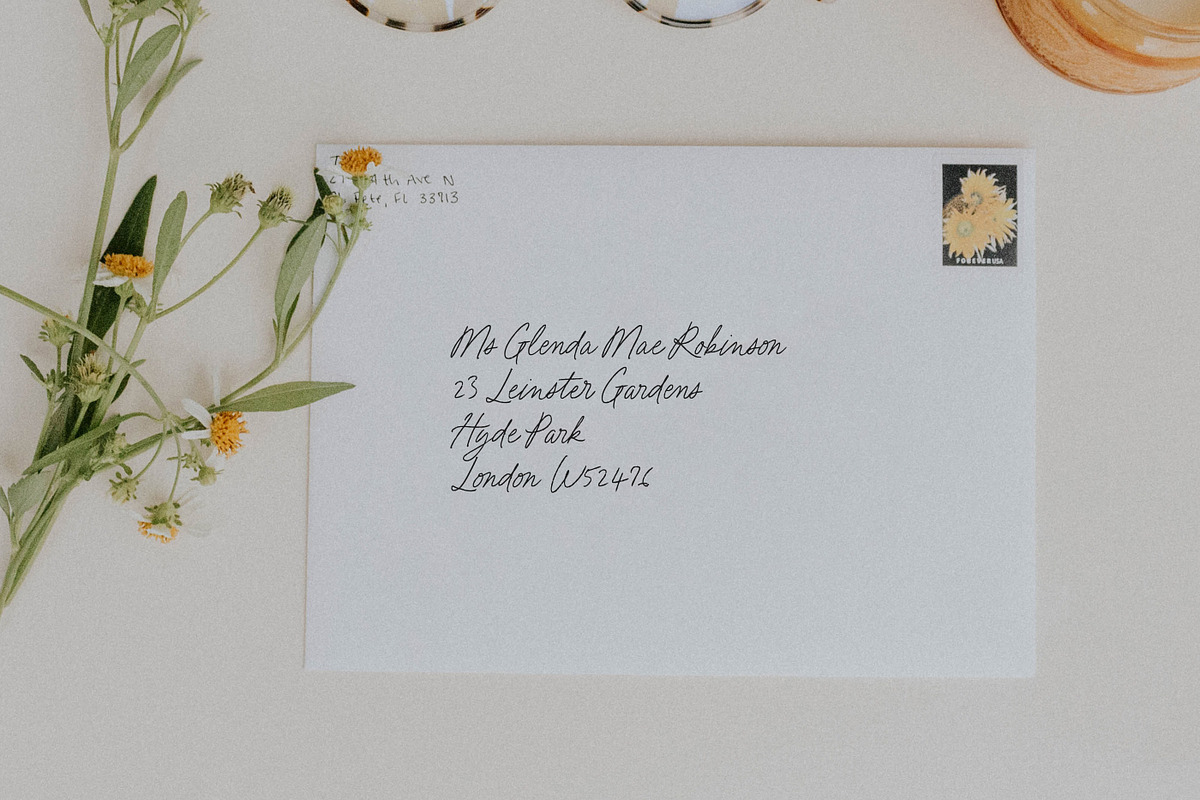 4th Ave N
Pete, FL 33713
FOREVER USA
Ms Glenda Mae Robinson
23 Leinster Gardens
Hyde Park
London W52476